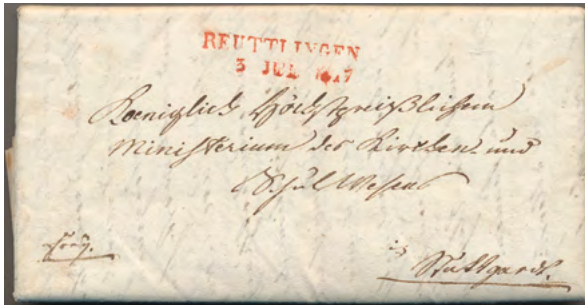 REUTTLINGEN
3 JUL 1817
Koeniglich Höchstpreißlichem
Ministerium des Kirchen- und
Schul Wesens
in
Stuttgardt.